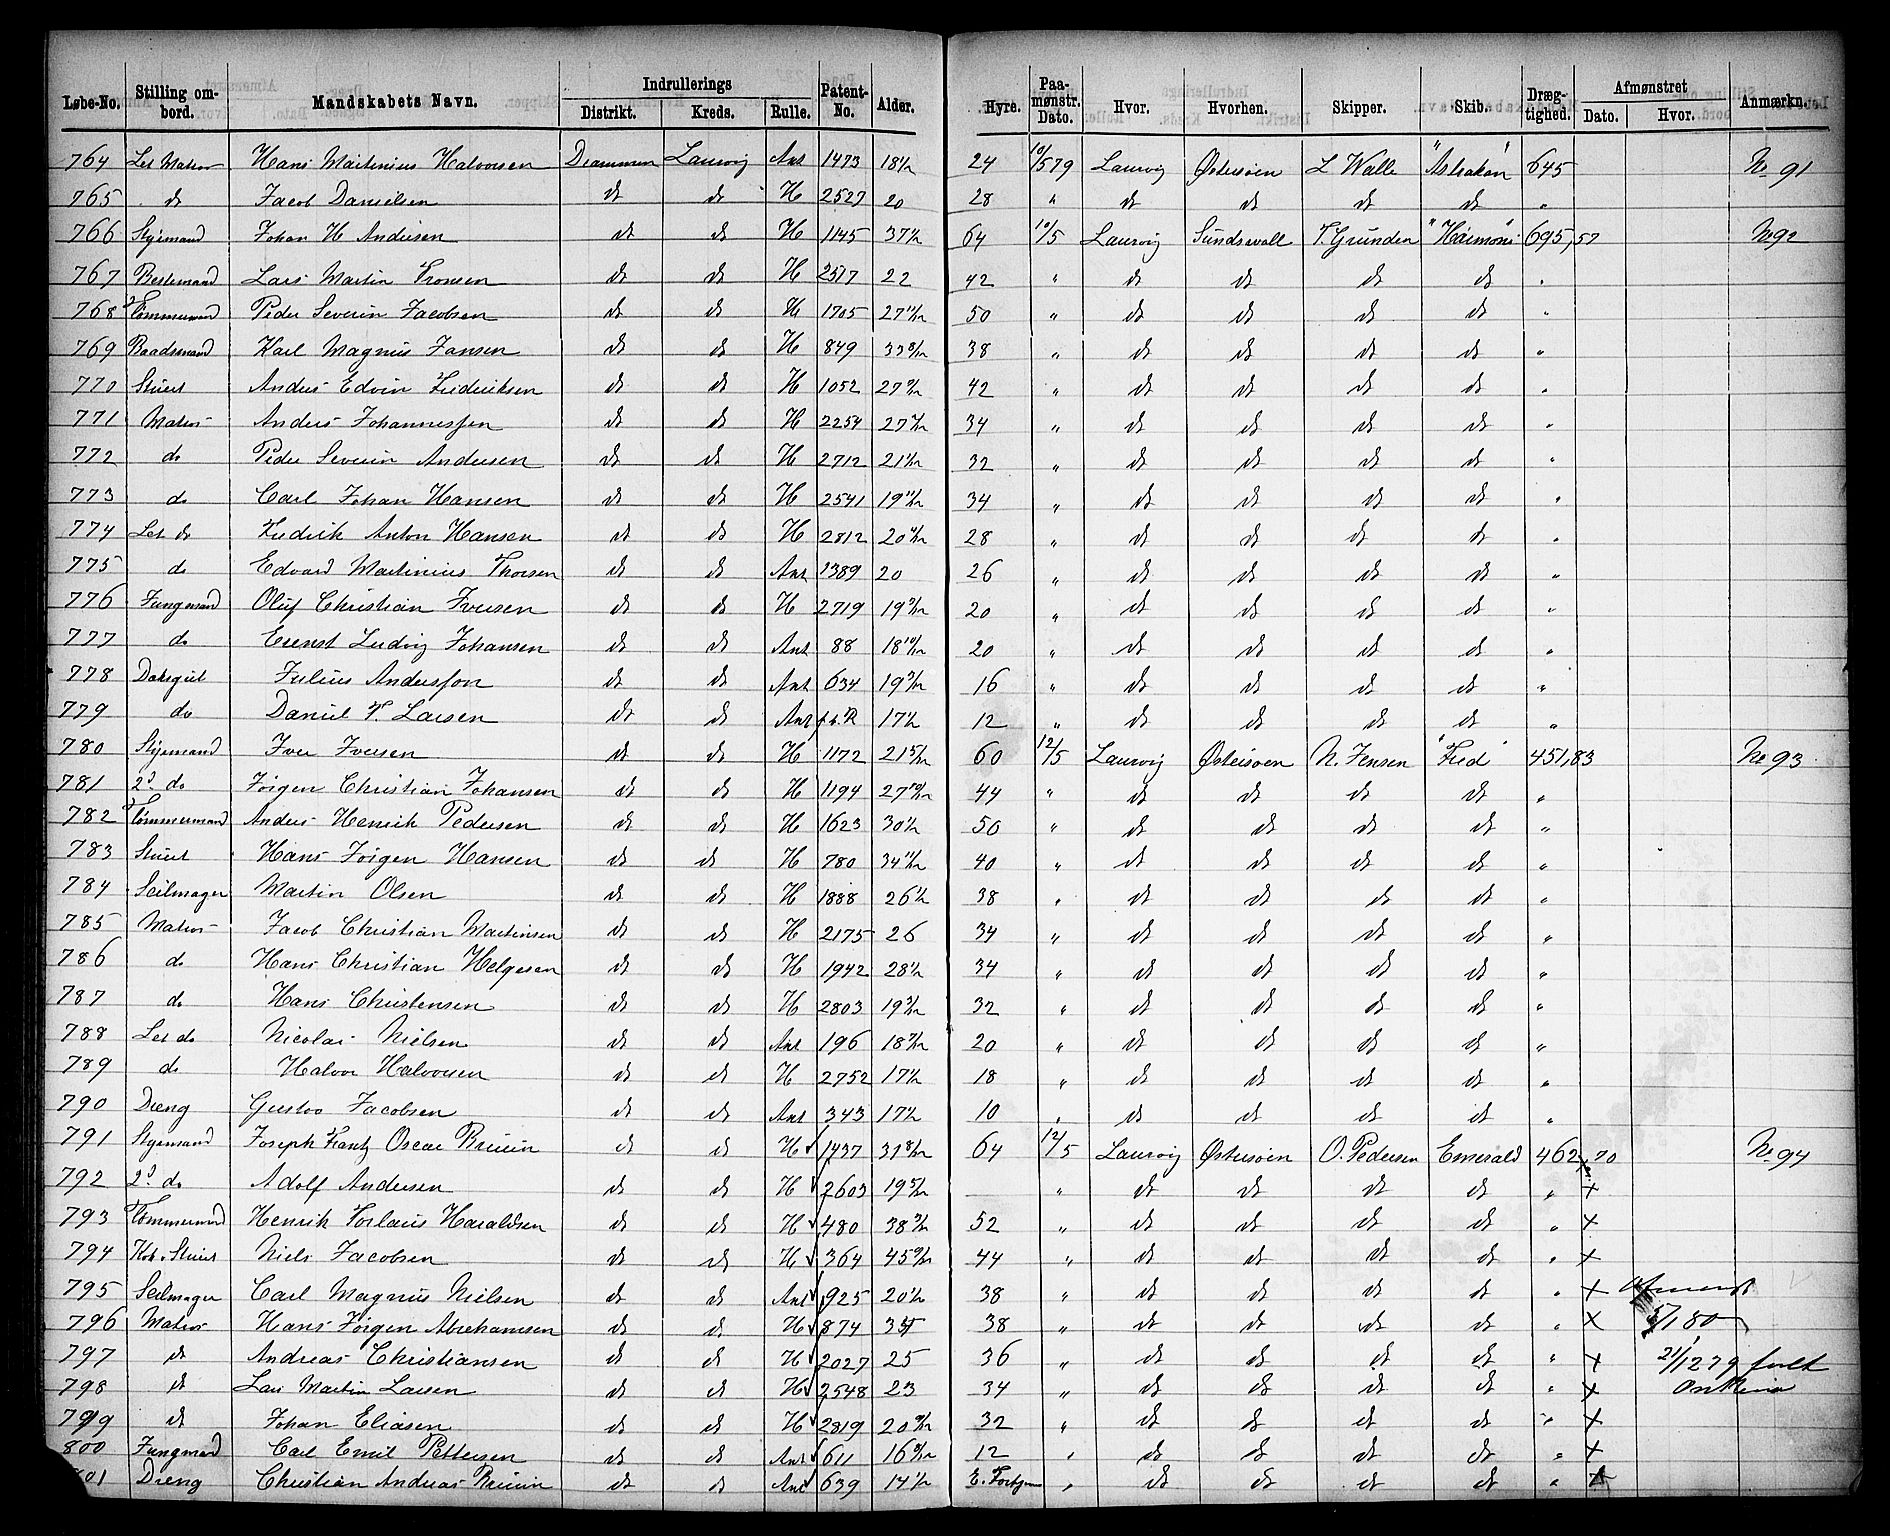 Løbe-No. Stilling ombord. Mandskabets Navn. Indrullerings Distrikt. Kreds. Rulle. Patent-No. Alder. Hyre. Paamønstr. Dato. Hvor. Hvorhen. Skipper. Skib. Drægtighed. Afmønstret Dato. Hvor. Anmærkn.
764 Let Matros Hans Martinius Halvorsen Drammen Laurvig Ant 1473 18½ 24 10/5 79 Laurvig Østersøen L Walle "Astrakan" 645 No 91
765 do Jacob Danielsen dt dt H 2527 20 28 " dt dt dt dt "
766 Styrmand Johan H Andersen dt dt H 1145 37½ 64 10/5 Laurvig Sundsvall T. Grunden 695,57 No 92
767 Bestemand Lars Martin dt dt H 2517 22 42 " dt dt dt dt "
768 Tømmermand Peder Severin Jacobsen dt dt H 1705 27 50 " dt dt dt dt "
769 Baadsmand Karl Magnus Jansen dt dt H 849 33 38 " dt dt dt dt "
770 Stuert Anders Edvin Frederiksen dt dt H 1052 27 42 " dt dt dt dt "
771 Matros Anders Johannessen dt dt H 2254 27 34 " dt dt dt dt "
772 do Peder Severin Andersen dt dt H 2712 21 32 " dt dt dt dt "
773 do Carl Johan Hansen dt dt H 2541 19 34 " dt dt dt dt "
774 Let do Fredrik Anton Hansen dt dt H 2812 20 28 " dt dt dt dt "
775 do Edvard Martinius Thorsen dt dt Ant 1389 20 26 " dt dt dt dt "
776 Jungmand Oluf Christian Iversen dt dt H 2719 19 20 " dt dt dt dt "
777 do Ernst Ludvig Johansen dt dt Ant 88 18 20 " dt dt dt dt "
778 Dæksgut Julius Anderssen dt dt Ant 634 19 16 " dt dt dt dt "
779 do Daniel T Larsen dt dt Ant 17½ 12 " dt dt dt dt "
780 Styrmand Iver Iversen dt dt H 1172 21 60 12/5 Laurvig Østersøen N. Jensen "Fred" 451,83 No 93
781 2d do Jørgen Christian Johansen dt dt H 1194 27 44 " dt dt dt dt "
782 Tømmermand Anders Henrik Pedersen dt dt H 1623 30½ 50 " dt dt dt dt "
783 Stuert Hans Jørgen Hansen dt dt H 780 34 40 " dt dt dt dt "
784 Seilmager Martin Olsen dt dt H 1888 26½ 38 " dt dt dt dt "
785 Matros Jacob Christian Martinsen dt dt H 2175 26 34 " dt dt dt dt "
786 do Hans Christian Helgesen dt dt H 1942 28½ 34 " dt dt dt dt "
787 do Hans Christensen dt dt H 2803 19 32 " dt dt dt dt "
788 Let do Nicolai Nielsen dt dt Ant 196 18 20 " dt dt dt dt "
789 do Halvor Halvorsen dt dt H 2752 17½ 18 " dt dt dt dt "
790 Dreng Gustav Jacobsen dt dt Ant 343 17½ 10 " dt dt dt dt "
791 Styrmand Joseph Frantz Oscar Bruun dt dt H 1437 31 64 12/5 Laurvig Østersøen O. Pedersen Emerald 462,70 No 94
792 2d do Adolf Andersen dt dt H 2603 19 " dt dt dt dt " x
793 Tømmermand Henrik Haraldsen dt dt H 480 38 52 " dt dt dt dt " x
794 Kok. Stuert Niels Jacobsen dt dt H 364 45 44 " dt dt dt dt " x
795 Seilmager Carl Magnus Nielsen dt dt Ant 925 20½ 38 " dt dt dt dt " x
796 Matros Hans Jørgen Abrahamsen dt dt H 874 38 " dt dt dt dt " x 80
797 dt Andreas Christiansen dt dt H 2027 25 36 " dt dt dt dt " x 21/12 79
798 dt Lars Martin Larsen dt dt H 2548 23 34 " dt dt dt dt " x
799 dt Johan Eliasen dt dt H 2819 20 32 " dt dt dt dt " x
800 Jungmand Carl Emil Pettersen dt dt Ant 611 16 12 " do dt dt dt " x
01 Dreng Christian Andreas Bruun dt dt Ant 639 14½ " dt dt dt dt "